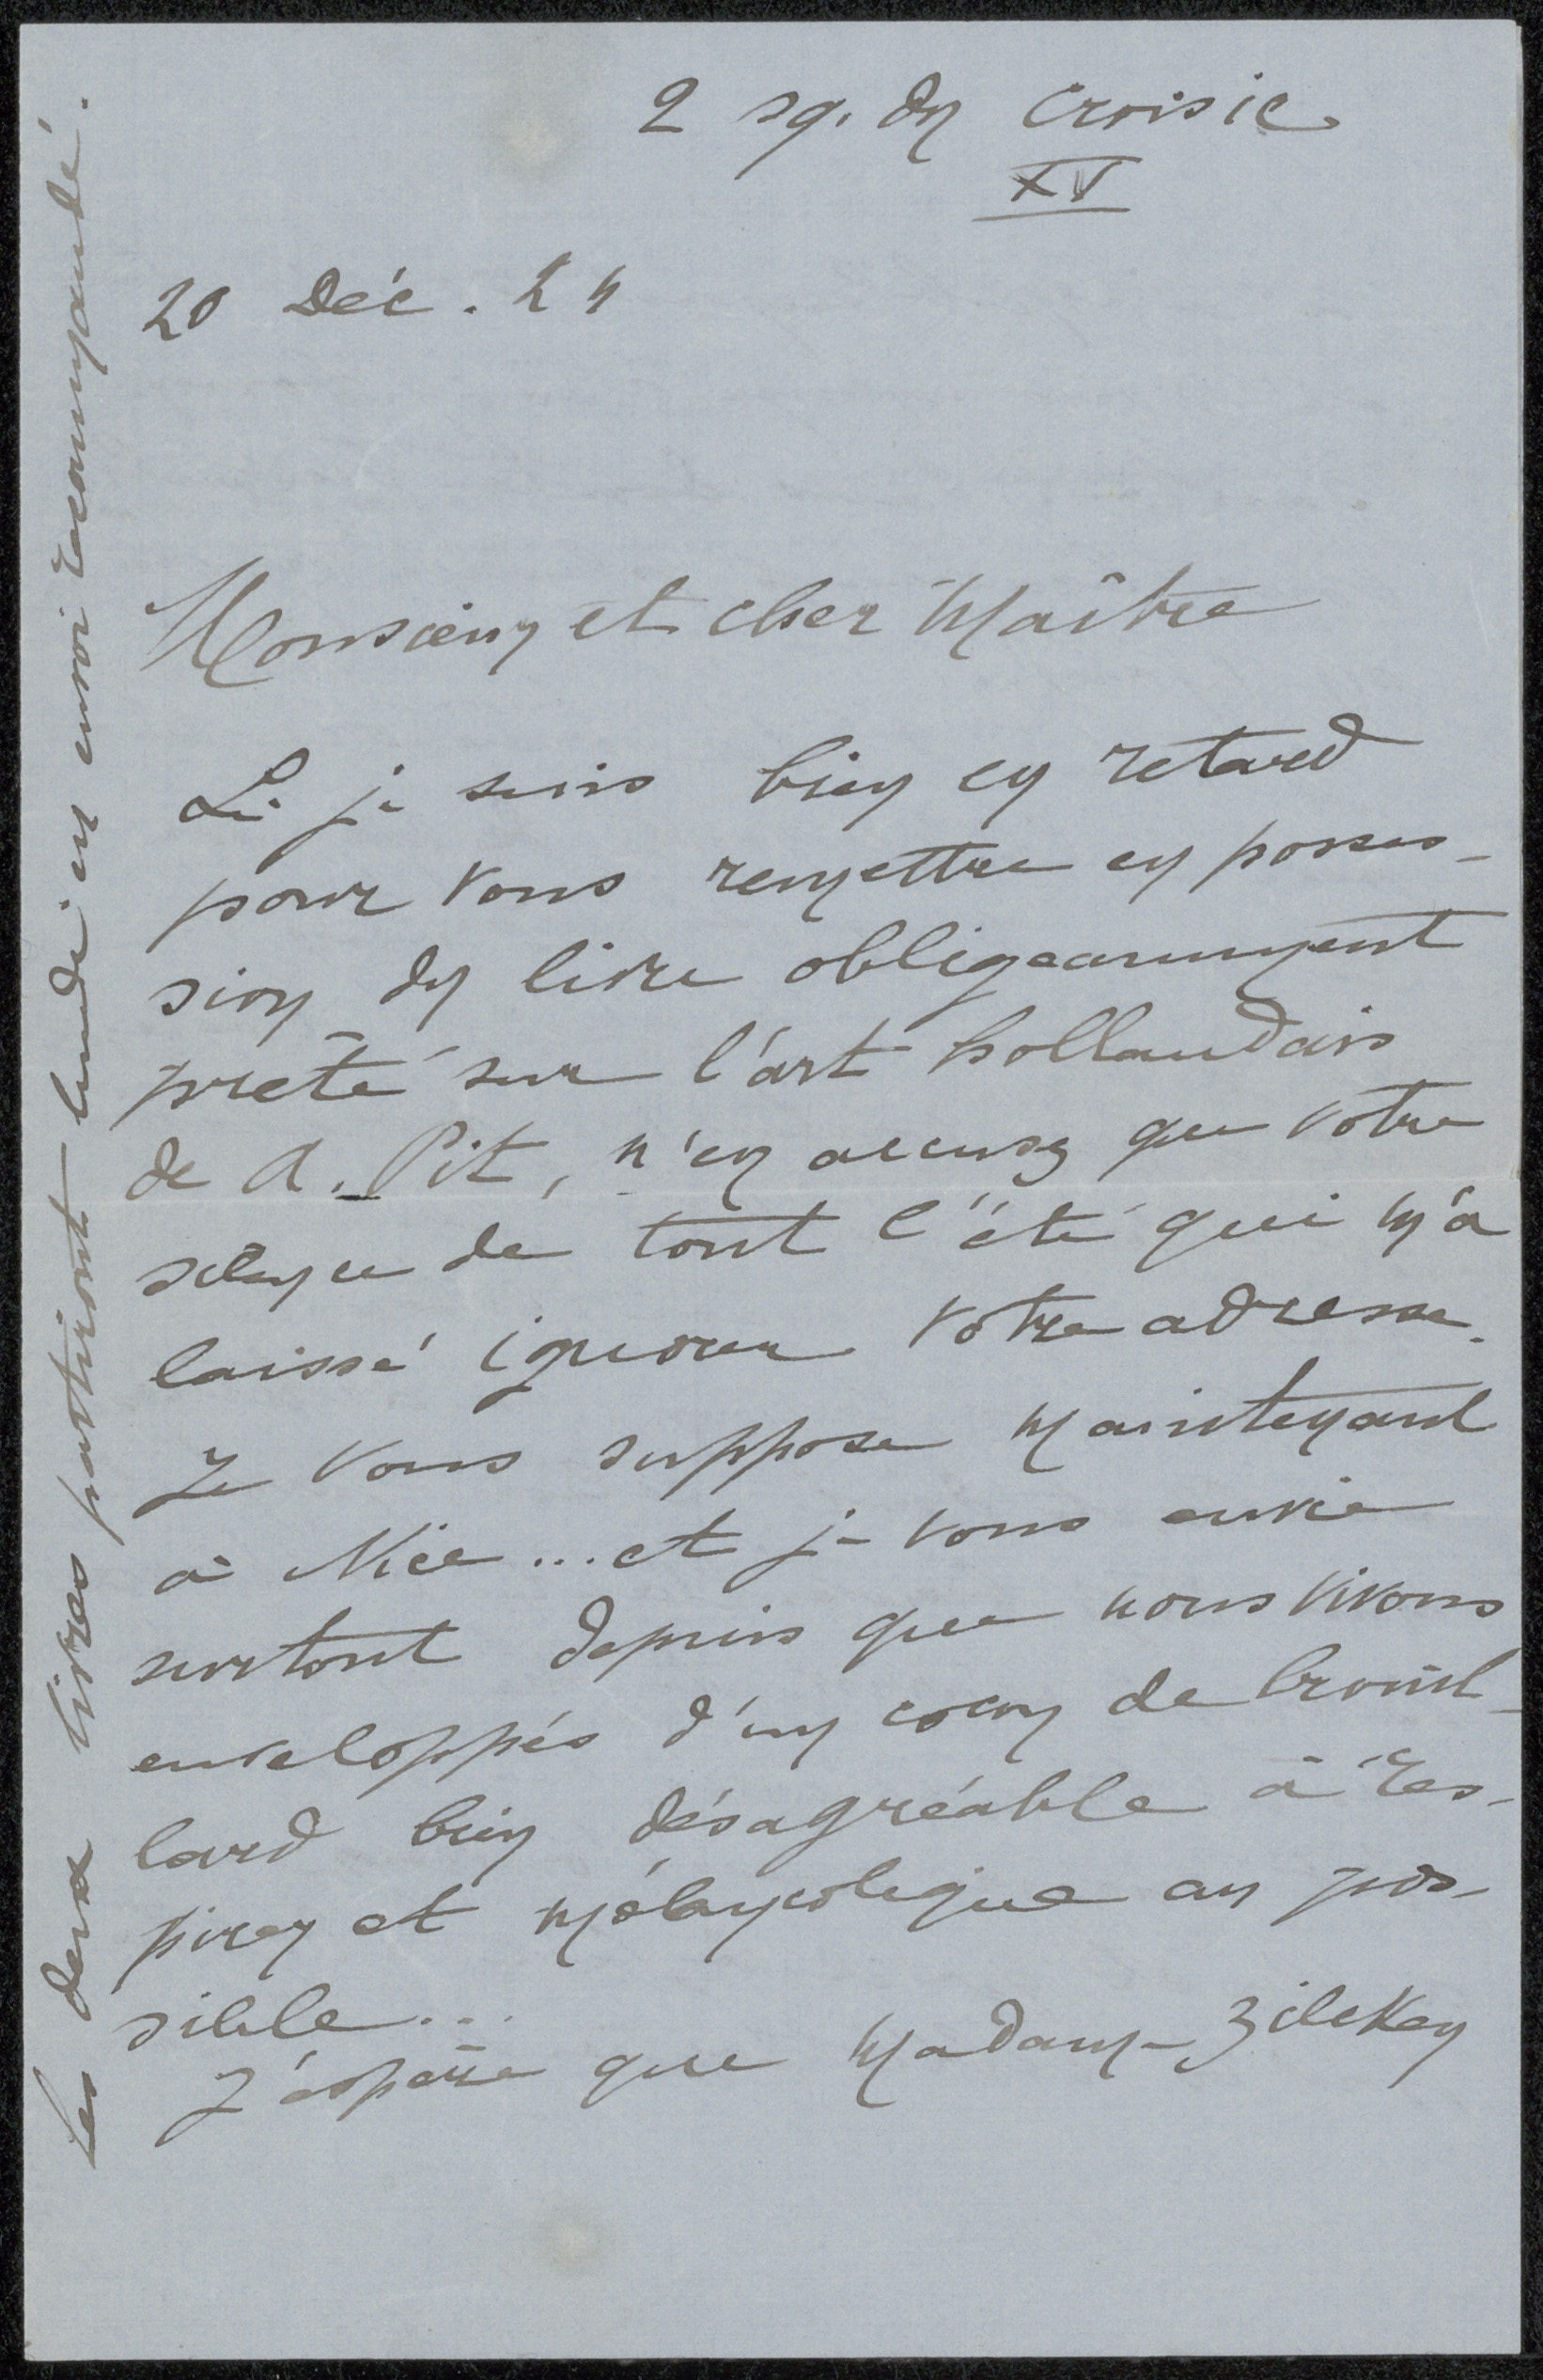 2 sq. du Croisic
XV
20 Déc. 24
Monsieur et cher Maître
Si je suis bien en retard
pour vous remettre en posses-
sion du livre obligeamment
prêté sur l'art hollandais
de A. Pit, n'en accusez que votre
de tout l'été qui m'a
laissé ignorer votre adresse.
Je vous suppose maintenant
à Nice... et je vous envie
surtout depuis que nous vivons
enveloppés d'un cocon de brouil-
lard bien désagréable à res-
pirer et mélancolique au pos-
sible...
J'espère que Madame Zilcken
Les deux livres partiront lundi en envoi recommandé.